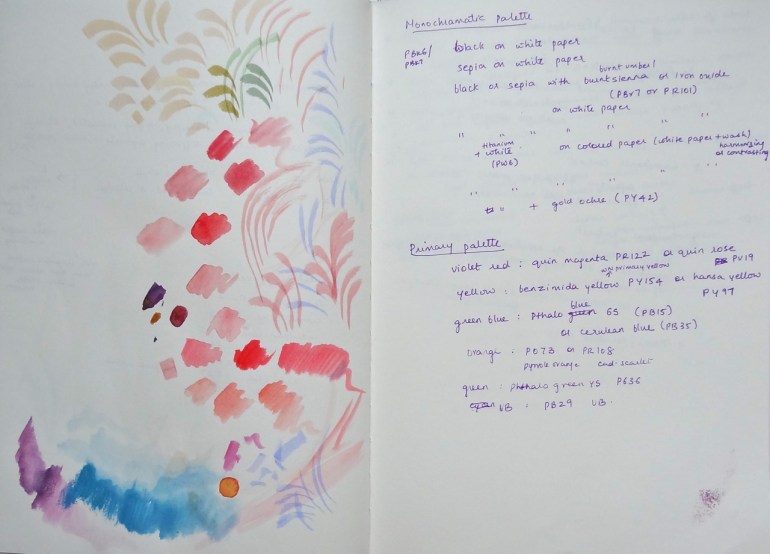 Monochromatic palette
PBk6/ PBk7
black on white paper
sepia on white paper
burnt umber/
black or sepia with burnt sienna or iron oxide
(PBr7 or PR101)
on white paper
" " " " " " "
titanium + white (PW6) on colored paper (white paper + wash) harmonizing or contrasting
" " " " " " "
" = + gold ochre (PY42)
Primary palette
violet red : quin magenta PR122 or quin rose PV19
or primary yellow
yellow : benzimida yellow PY154 or hansa yellow PY97
blue
green blue : Pthalo green GS (PB15)
or cerulean blue (PB35)
orange : PO73 or PR108
pyrrole orange cad-scarlet
green : Phthalo green YS PG36
UB : PB29 UB.